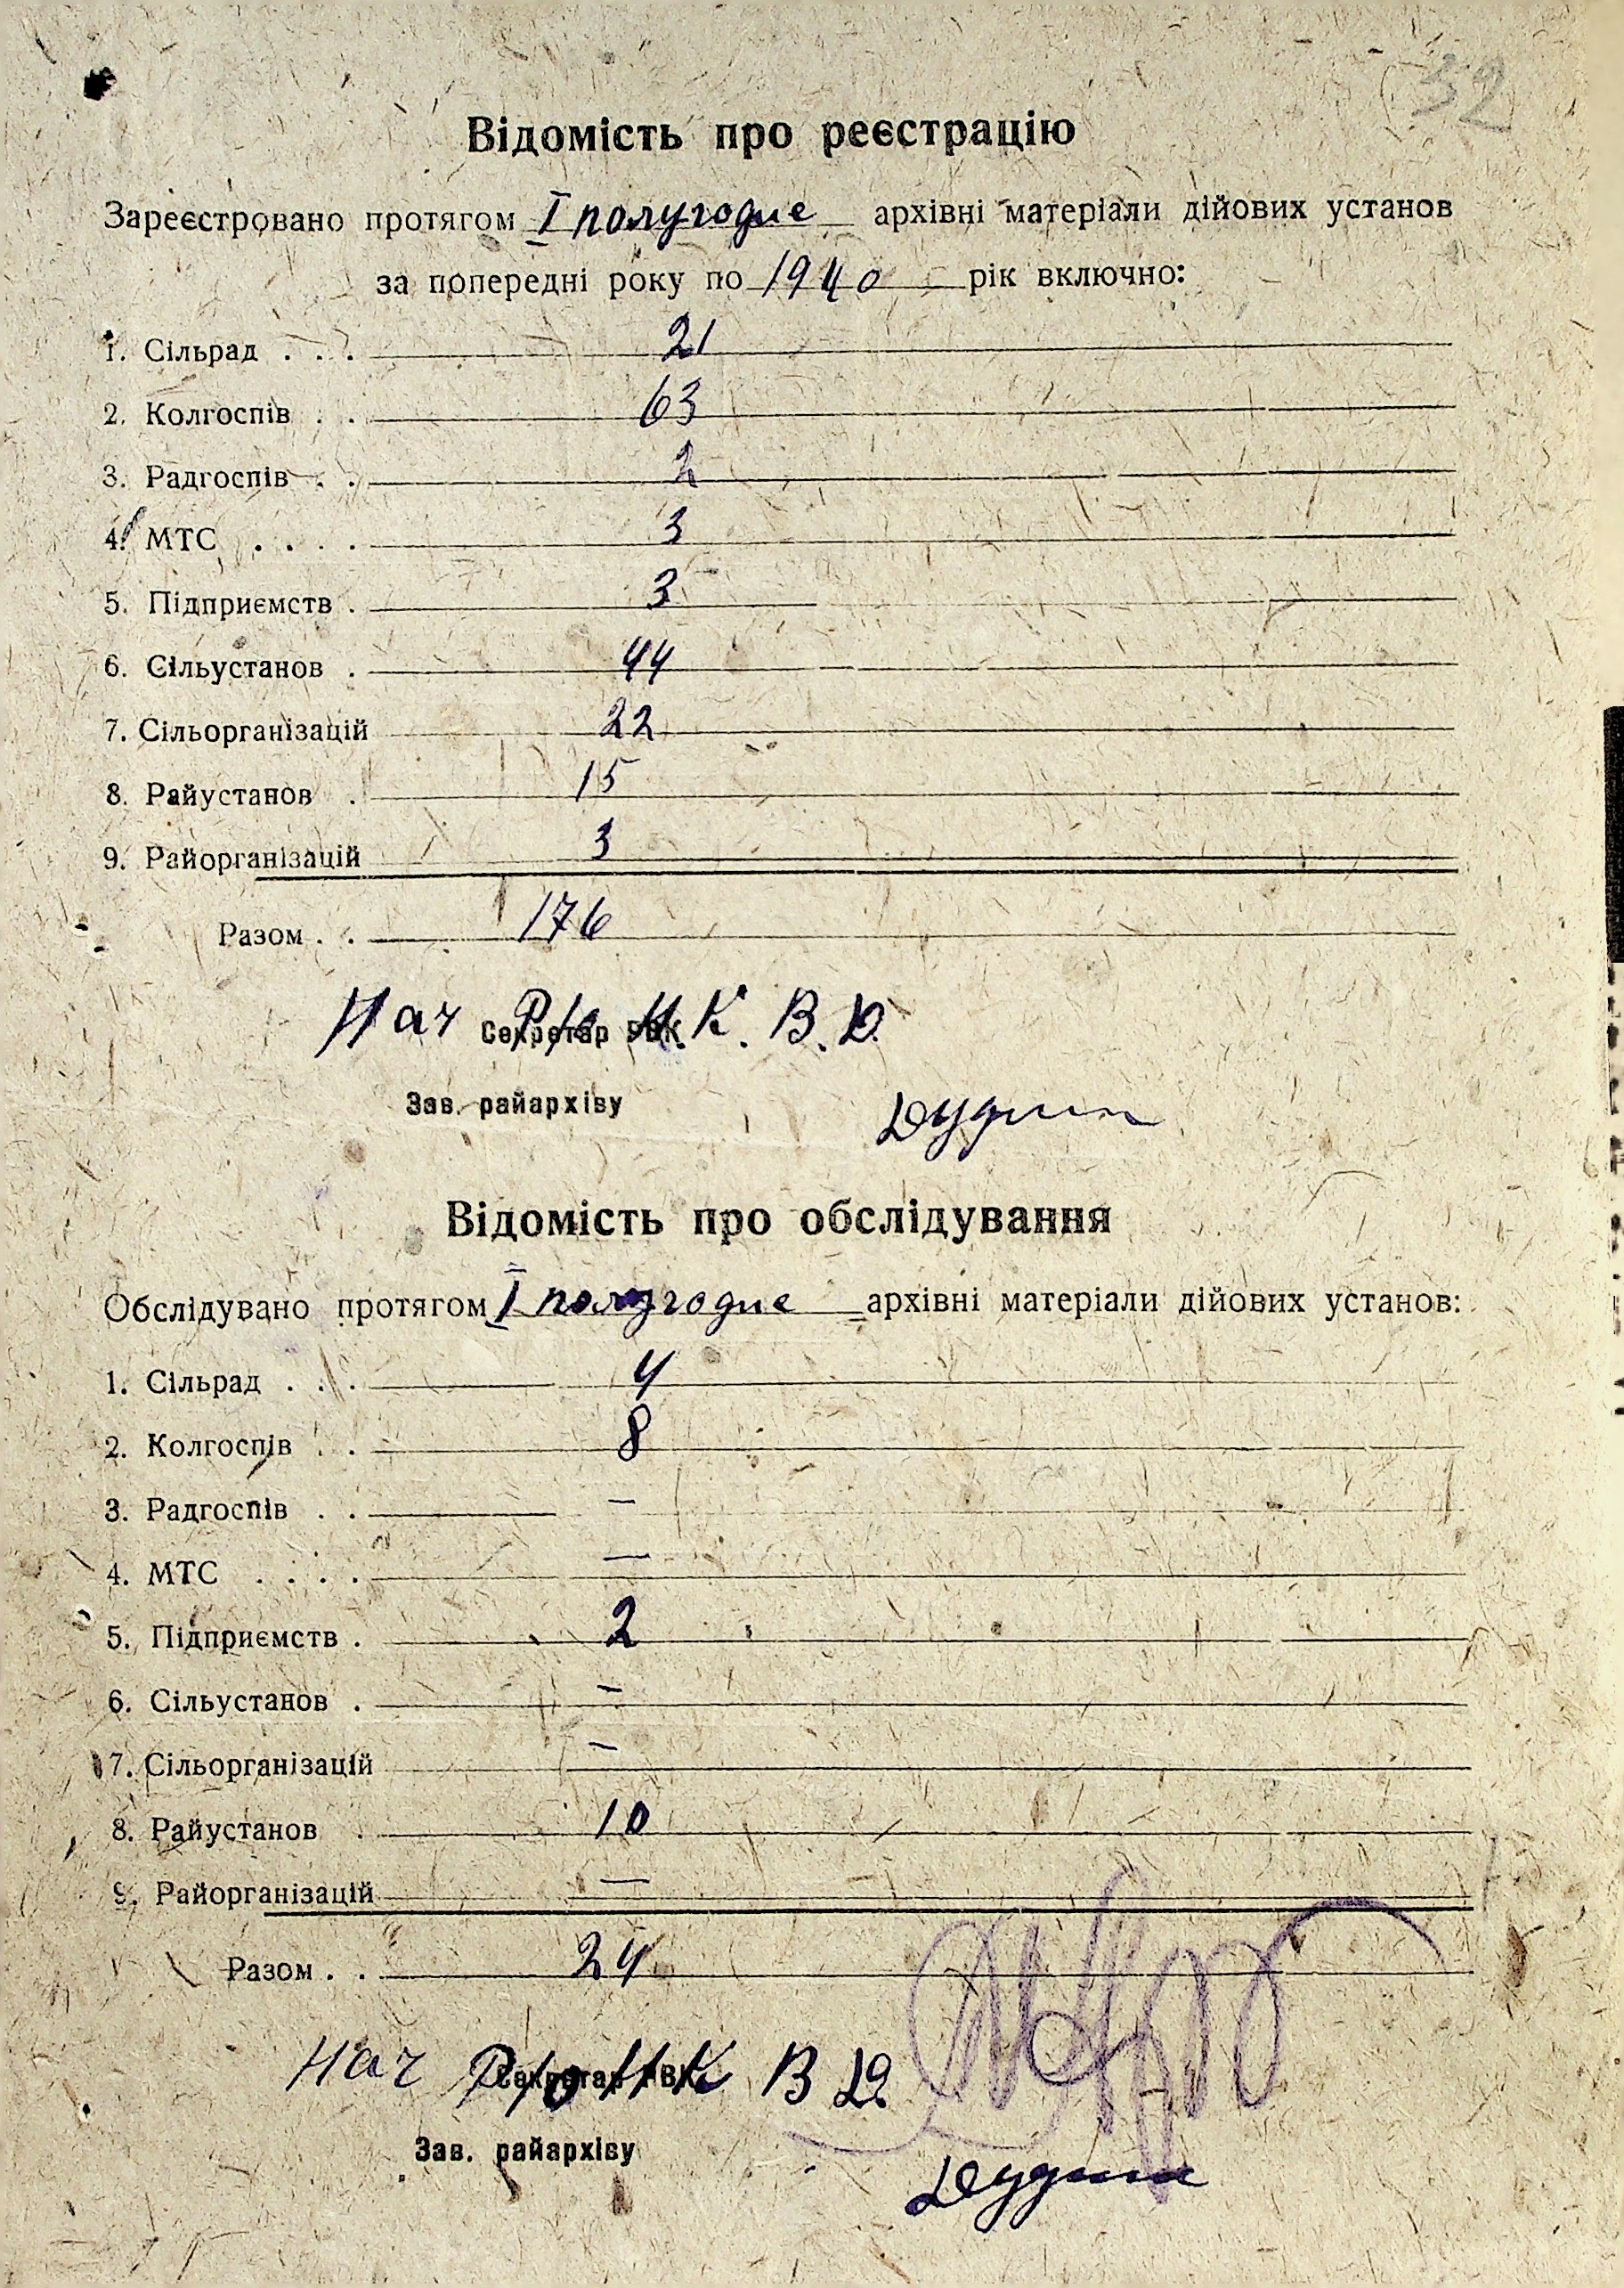 32
Відомість про реєстрацію
Зареєстровано протягом I полугодие архівні матеріали дійових установ
за попередні року по 1940 рік включно:
1. Сільрад . . . 21
2. Колгоспів . . 63
3. Радгоспів . . 2
4. МТС . . . . 3
5. Підприємств . 3
6. Сільустанов . 44
7. Сільорганізацій 22
8. Райустанов . 15
9. Райорганізацій 3
Разом . . 176
Нач Р/о Н.К.В.Д.
Секретар РВК
Зав. райархіву
Дудин
Відомість про обслідування
Обслідувано протягом I полугодие архівні матеріали дійових установ:
1. Сільрад . . . 4
2. Колгоспів . . 8
3. Радгоспів . . —
4. МТС . . . . —
5. Підприємств . 2
6. Сільустанов . —
7. Сільорганізацій —
8. Райустанов . 10
9. Райорганізацій —
Разом . . 24
Нач Р/о НК В Д.
Секретар РВК
Зав. райархіву
Дудин